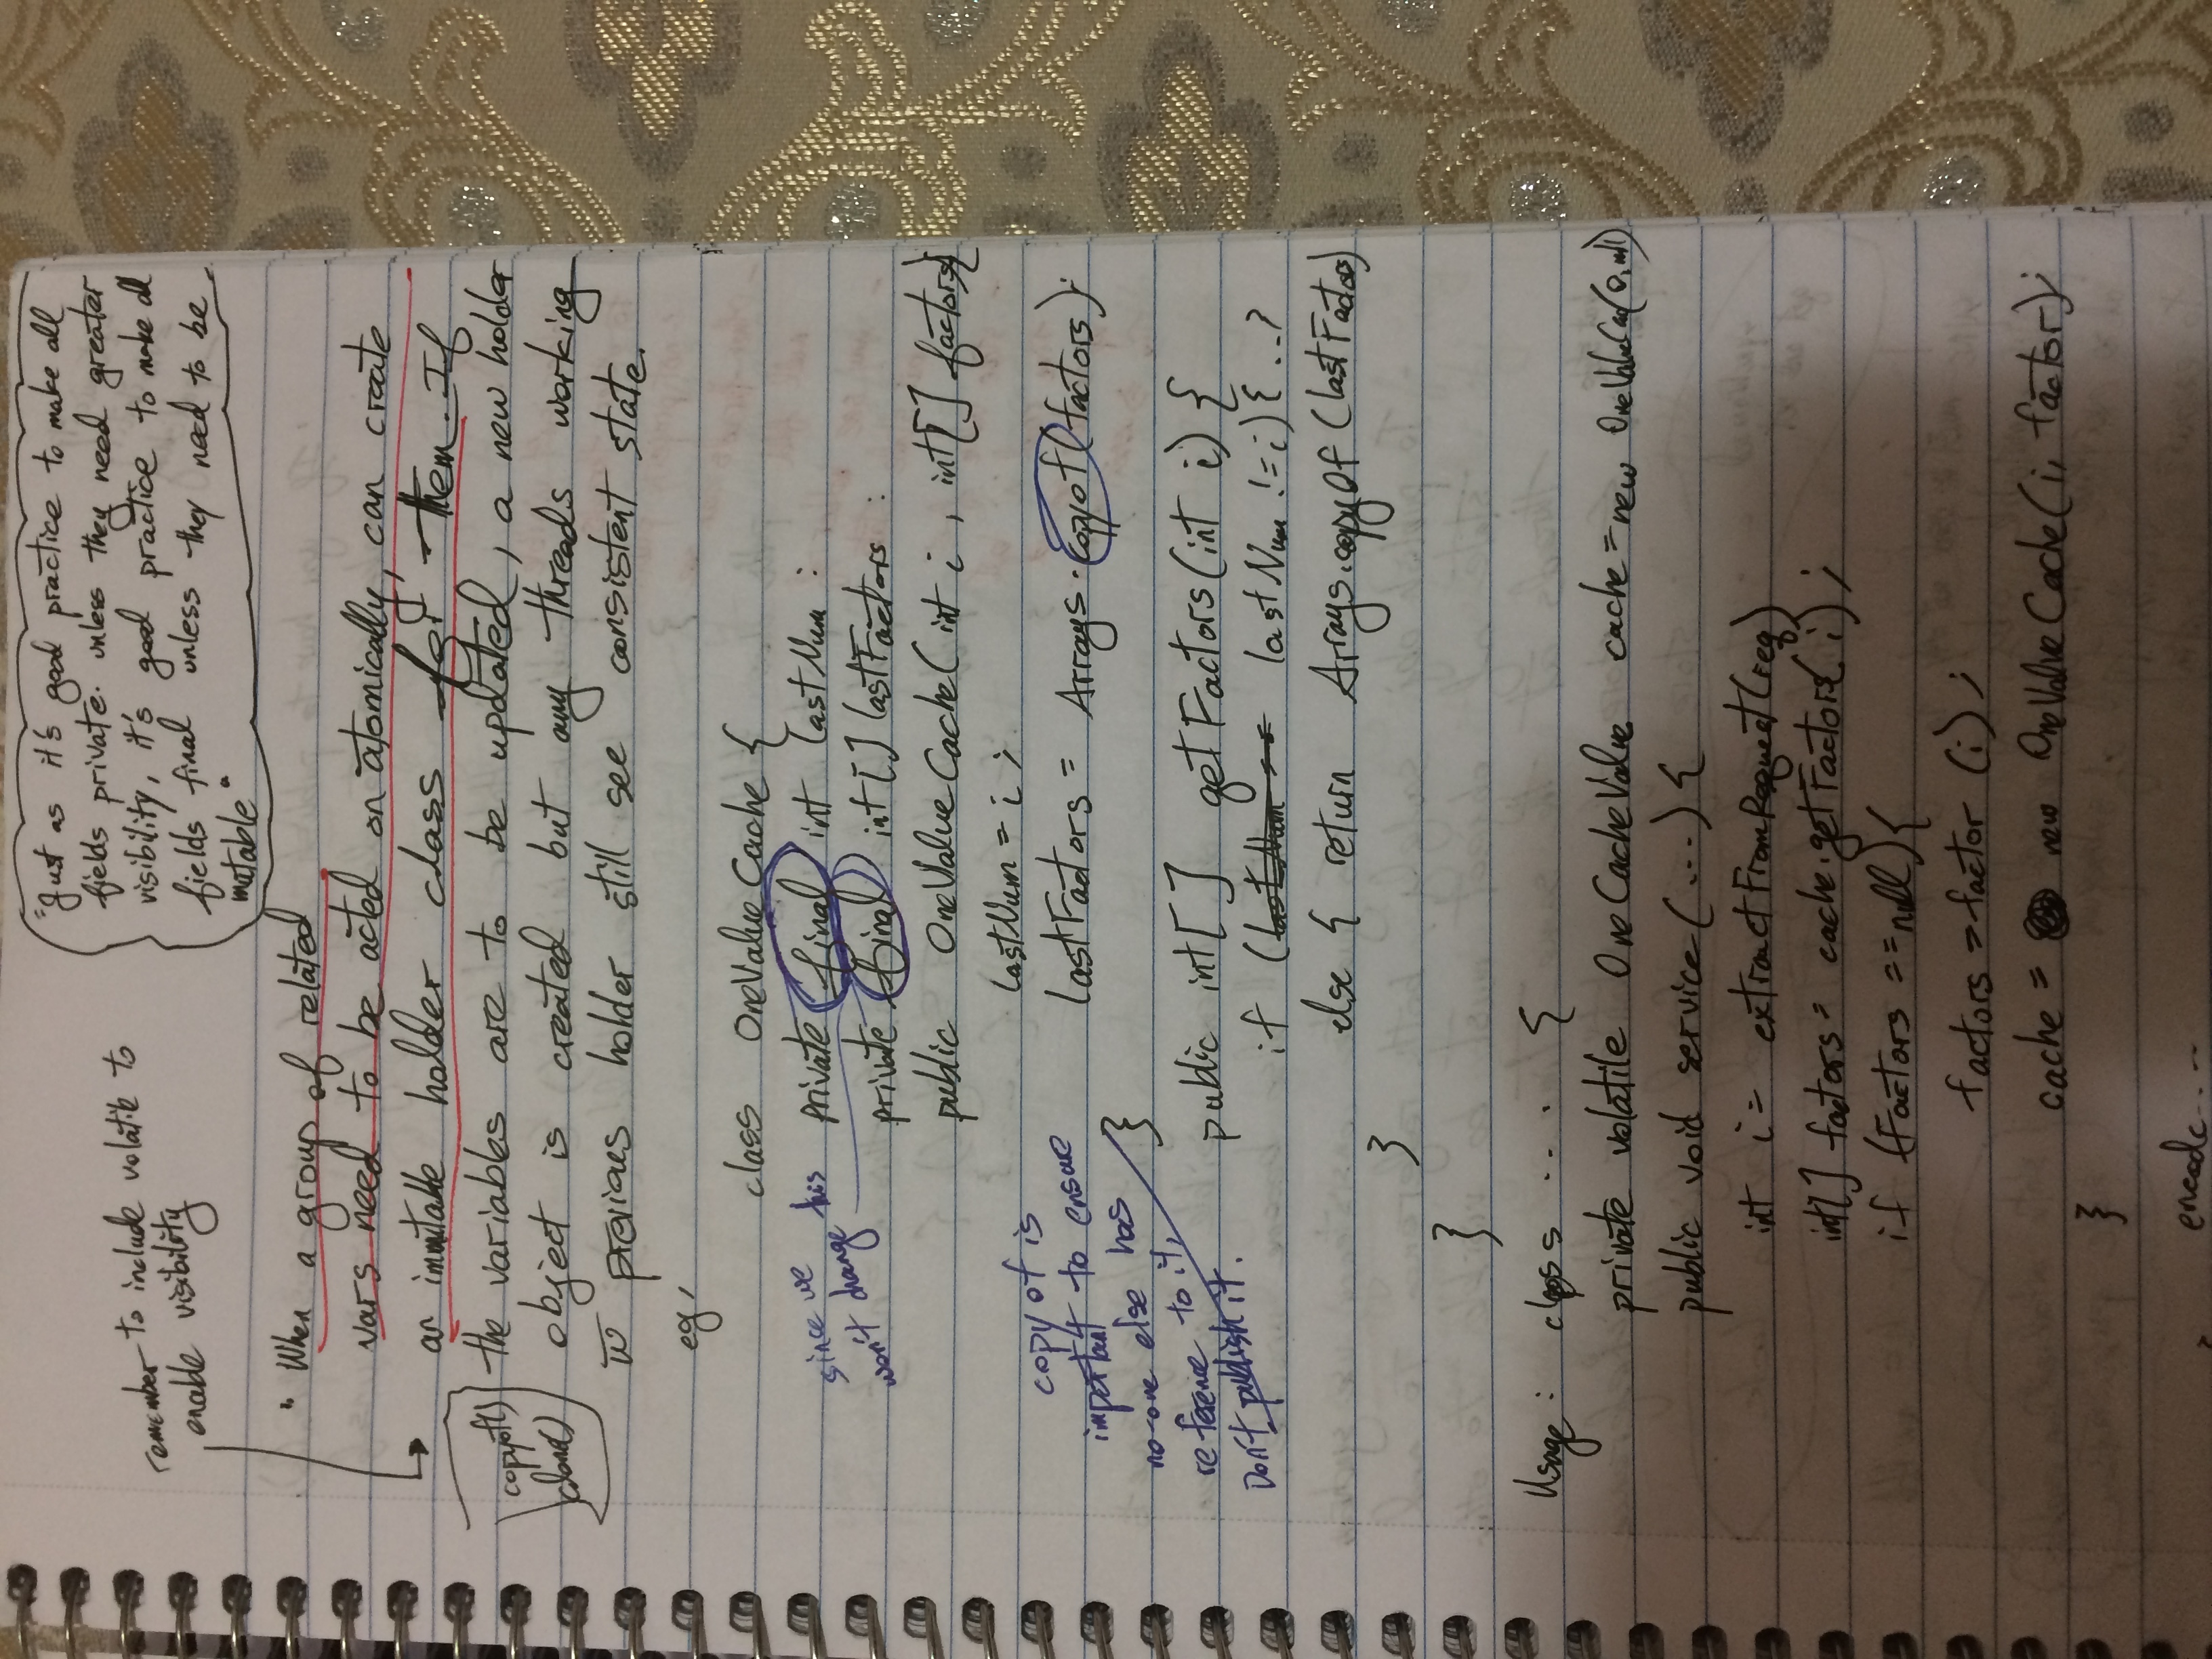 "Just as it's good practice to make all
fields private. unless they need greater
visibility, it's good practice to make all
fields final unless they need to be
mutable"
remember to include volatile to
enable visibility
" When a group of related
vars need to be acted on atomically, can create
an immutable holder class for them. If
the variables are to be updated, a new holder
object is created but any threads working
w previous holder still see consistent state.
copyof()
clone()
eg,
class OneValueCache {
private final int lastNum :
private final int[] lastFactors :
since we
won't change this
public OneValueCache( int i , int[] factors{
lastNum = i ;
lastFactors = Arrays.copyof(factors);
}
copy of is
important to ensure
no-one else has
reference to it,
Don't publish it.
public int[ ] getFactors(int i) {
if (lastNum == lastNum != i) { ..}
else { return Arrays.copyOf (lastFactors)
}
}
Usage : class .... {
private volatile OneCacheValue cache = new OneValueCac(0, null)
public void service (...) {
int i = extractFromRequest(req)
int[] factors = cache.getFactors( i ) ;
if (Factors == null) {
factors = factor (i) ;
cache = new OneValueCache(i, factor);
}
encode....